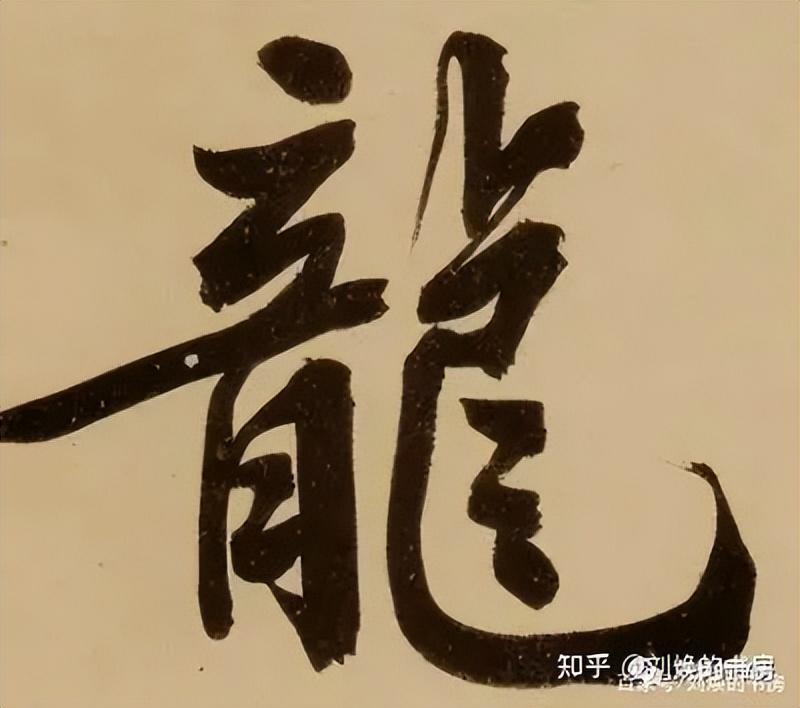 龍
知乎 @刘焕的书房
百家号/刘焕的书房